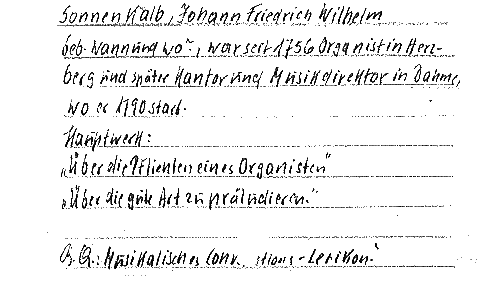 Sonnenkalb, Johann Friedrich Wilhelm
Geb. wann und wo?, war seit 1756 Organist in Herz-
berg und später Kantor und Musikdirektor in Dahme,
wo er 1790 starb.
Hauptwerk:
„Über die Pflichten eines Organisten"
„Über die gute Art zu präludieren."
B.Q.: Musikalisches Conv. ations-Lexikon.